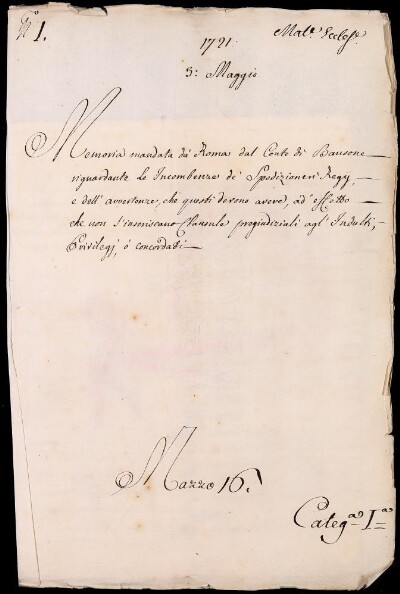 N.° 1.
Mat.e Eccles.e
1721
3: Maggio
Memoria mandata da Roma dal Conte di Bausone
riguardante le Incombenze de' Spedizioneri Regy,
e dell' avvertenze, che questi devono avere, ad' effetto
che non s'inseriscano Clausule pregiudiziali agl' Indulti,
Privilegj, ó concordati
Mazzo 16.
Categ.a I.a